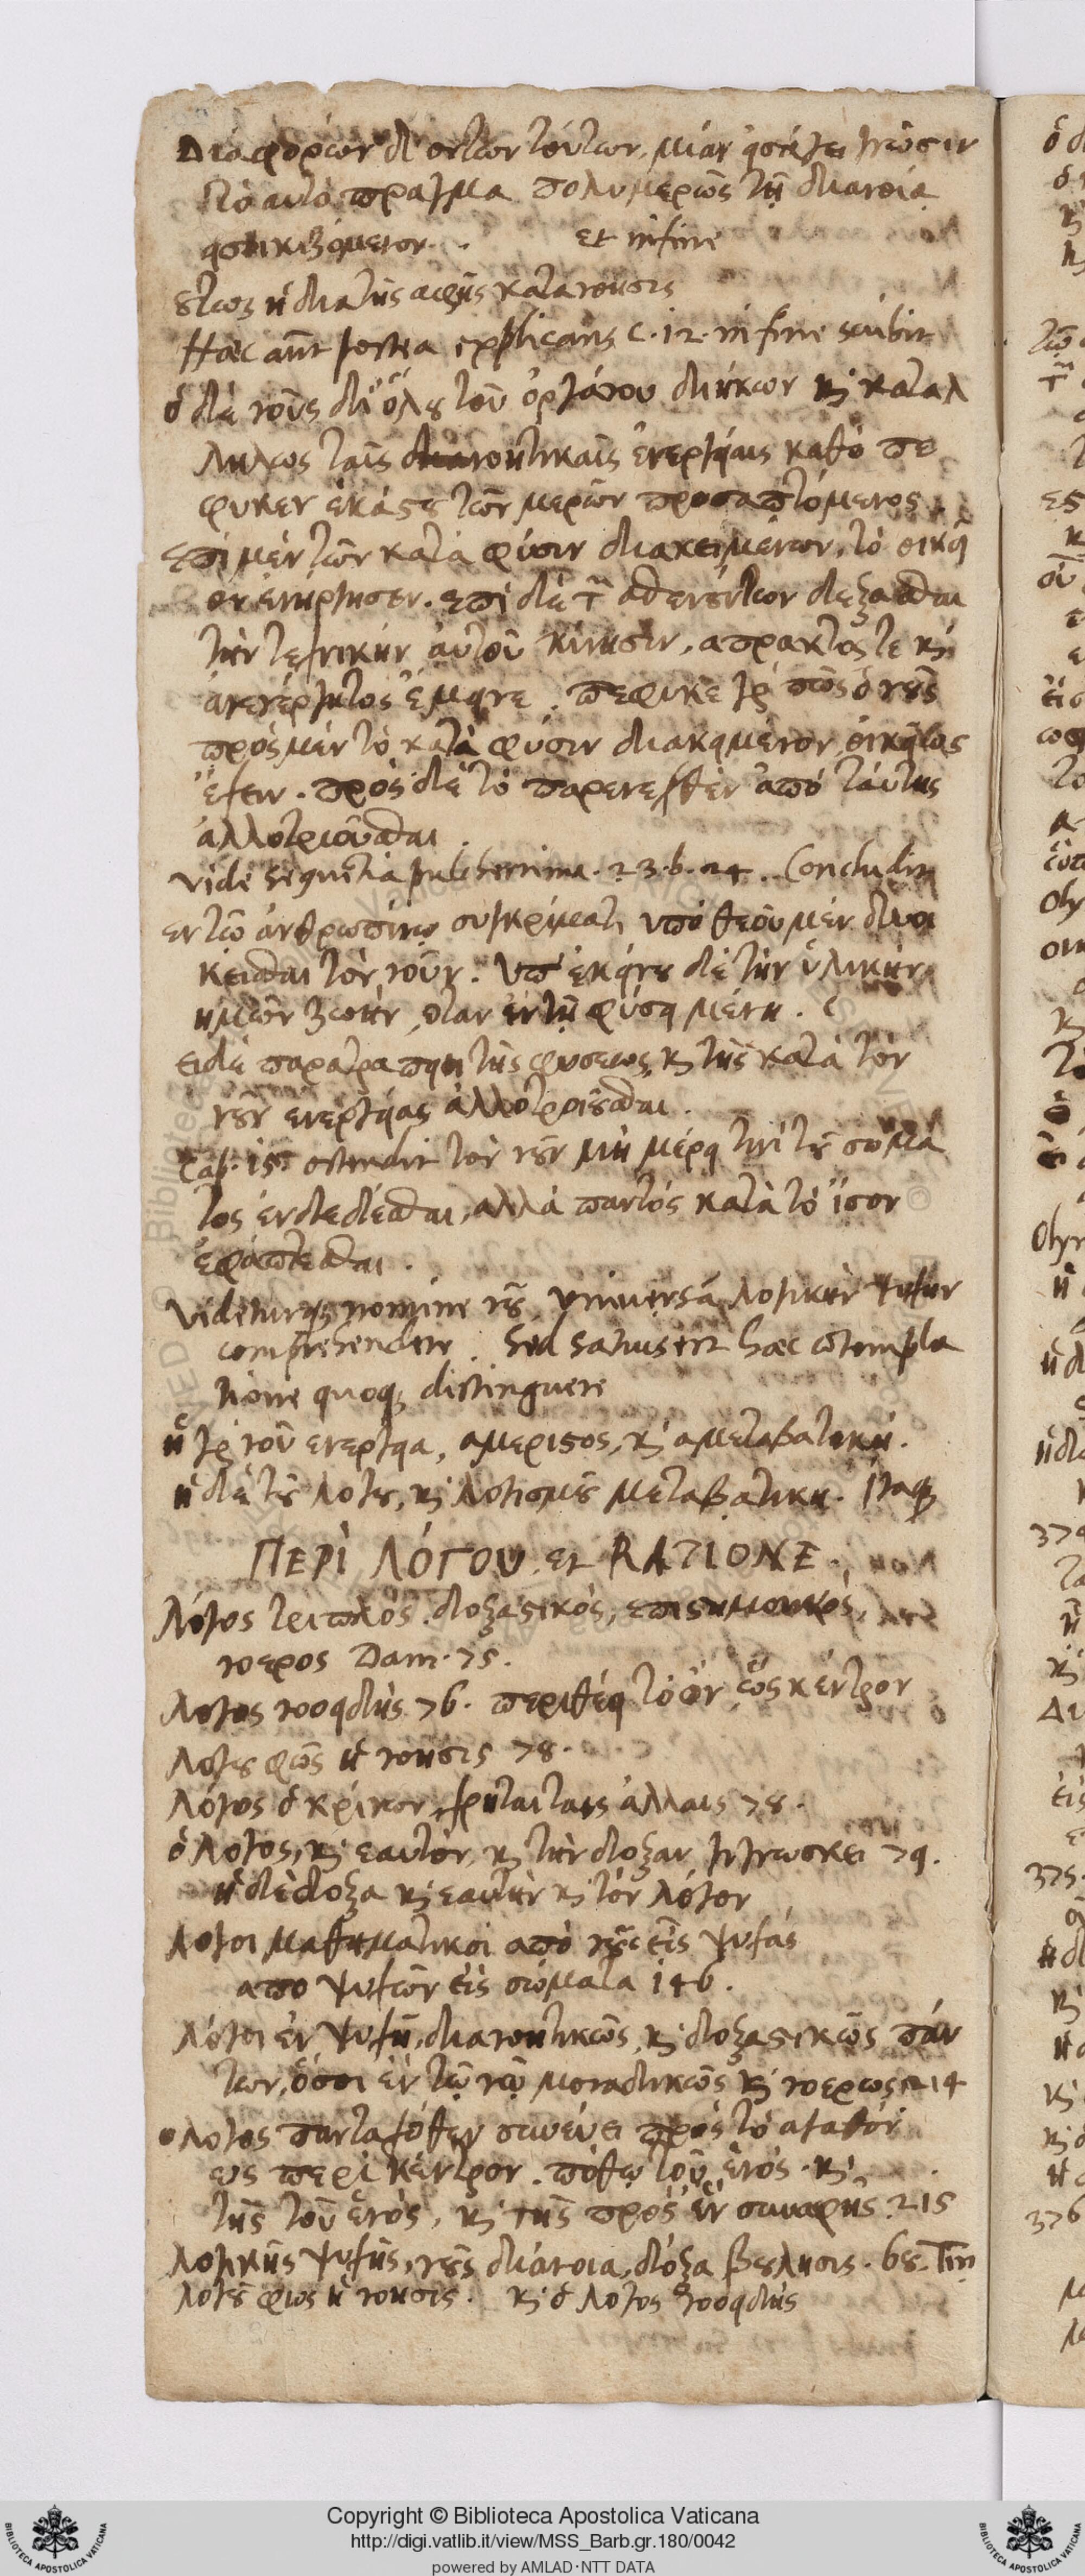 Διαφόρων δ' όντων τούτων, μίαν φέρει γνώσιν
το αυτό πράγμα πολυμερώς τη διανοία
εικονιζόμενον. et in fine
ούτως η δια της αφής κατανόησις
Haec autem postea explicans c. 12. in fine scribit
ὁ δὲ νοῦς δι' ὅλου τοῦ ὀργάνου διήκων καὶ καταλ
λήλως ταῖς νοητικαῖς ἐνεργείαις καθό πε
φυκεν ἑκάστῳ τῶν μερῶν προσαπτόμενος
επὶ μὲν τῶν κατὰ φύσιν διακειμένων, τὸ οικεί
ον ἐνήργησεν. επὶ δὲ τῶν ασθενούντων δέξασθαι
τὴν τεχνικὴν αὐτοῦ κίνησιν, απρακτός τε καὶ
ἀνενέργητος ἔμεινε. πέφυκε γάρ πως ὁ νοῦς
πρὸς μὲν τὸ κατὰ φύσιν διακείμενον οἰκείως
ἔχειν. πρὸς δὲ τὸ παρενεχθὲν ἀπὸ ταύτης
ἀλλοτριοῦσθαι.
Vide sequentia pulcherrima. 23. b. 24. Concludit
εν τῷ ἀνθρωπίνῳ συγκρίματι υπὸ θεοῦ μὲν διοι
κεῖσθαι τὸν νοῦν. υπ' ἐκείνου δὲ τὴν ὑλικὴν
ημῶν ζωήν, όταν ἐν τῇ φύσει μένη.
ει δὲ παρατραπείη τῆς φυσεως, καὶ τῆς κατὰ τὸν
νοῦν ενεργείας ἀλλοτριοῦσθαι.
Cap. 15 ostendit τὸν νοῦν μὴ μέρει τινὶ τοῦ σώμα
τος ἐνδεδέσθαι, αλλὰ παντός κατὰ τὸ ἴσον
ἐφάπτεσθαι.
Videturque nomine νοῦ, universam λογικὴν ψυχὴν
comprehendere. Sed satius est haec contempla
tione quoque distinguere
ἡ γὰρ τοῦ ενεργεια, αμεριστος, καὶ αμεταβατική.
ἡ δὲ τοῦ λογου, καὶ λογισμοῦ μεταβατικη. Itaque
ΠΕΡΙ ΛΟΓΟΥ. et RATIONE.
Λόγος τριπλός. δοξαστικός, επιστημονικός,
νοερος Dam. 75.
Λογος νοοειδὴς 76. περιθέει τὸ ὂν ὡς κέντρον
Λογου φῶς ἡ νοησις 78.
Λόγος ὁ κρίνων, χρῆται ταις άλλαις 78.
ὁ λόγος, καὶ εαυτὸν καὶ τὴν δοξαν γιγνωσκει 79.
ἡ δὲ δοξα καὶ εαυτὴν καὶ τὸν λόγον
Λογοι μαθηματικοι απὸ νοῦ εἰς ψυχάς
απο ψυχῶν εἰς σώματα 146.
Λόγοι ἐν ψυχῇ, διανοητικῶς, καὶ δοξαστικῶς πάν
των, ὅσοι ἐν τῷ νῷ μοναδικῶς καὶ νοερως 214
Λογος πανταχόθεν σπεύδει πρὸς τὸ αγαθόν
ως περὶ κέντρον. πόθῳ τοῦ ἑνός. καὶ
τῆς τοῦ ἑνὸς, καὶ τῆς πρὸς ἓν συναφῆς. 215
Λογικῆς ψυχῆς, νοῦς διάνοια, δόξα βούλησις. 68. Tim
Λόγου φως ἡ νοησις. καὶ ὁ λόγος νοοειδὴς
Copyright © Biblioteca Apostolica Vaticana
http://digi.vatlib.it/view/MSS_Barb.gr.180/0042
powered by AMLAD·NTT DATA